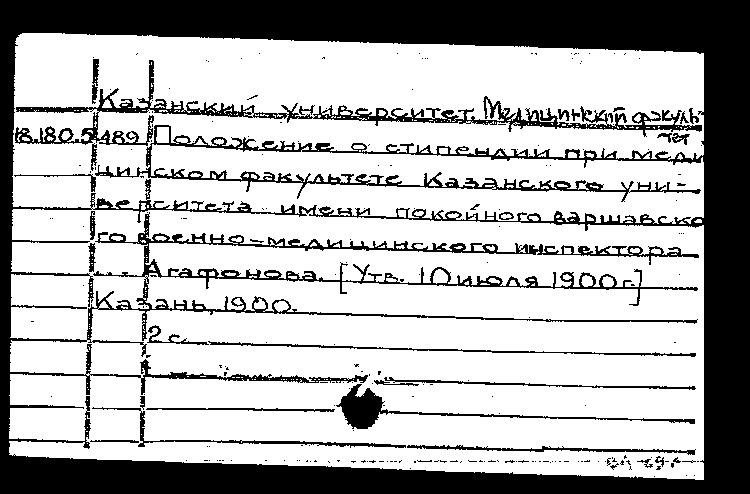 Казанский университет. Медицинский факуль-
тет
18.180.5.489 Положение о стипендии при меди-
цинском факультете Казанского уни-
верситета имени покойного варшавско-
го военно-медицинского инспектора
... Агафонова. [Утв. 10 июля 1900 г.]
Казань, 1900.
2 с.